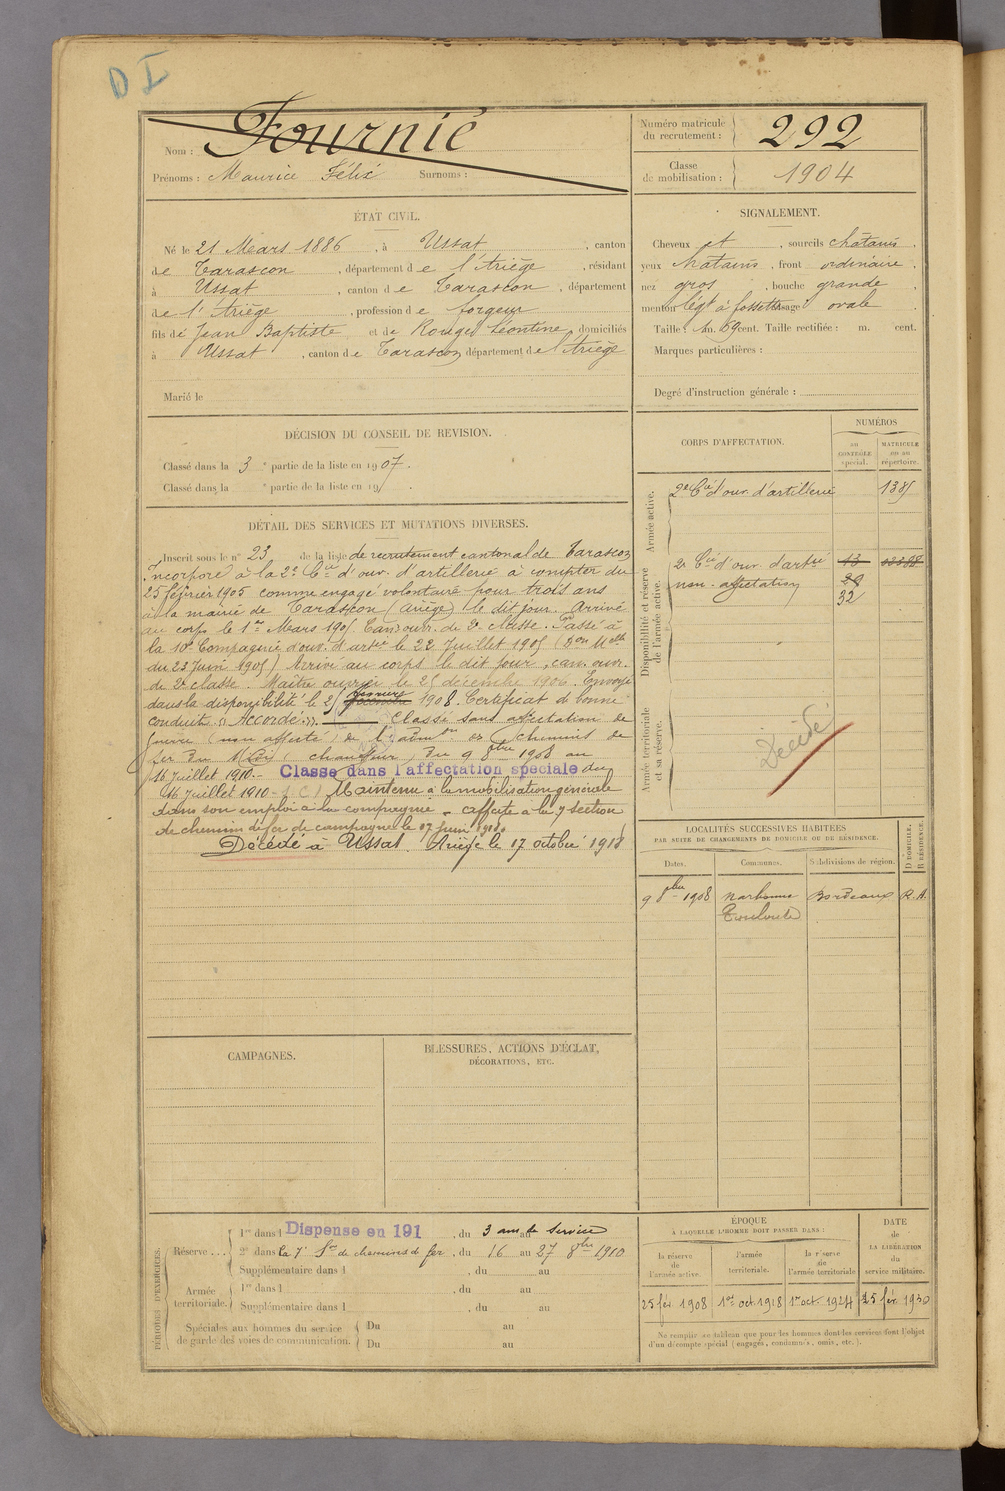 D I
Nom : Fournié
Prénoms : Maurice Félix Surnoms :
Numéro matricule du recrutement : 292
Classe de mobilisation : 1904
ÉTAT CIVIL.
Né le 21 Mars 1886, à Ussat, canton
de Tarascon, département de l'Ariège, résidant
à Ussat, canton de Tarascon, département
de l'Ariège, profession de forgeur
fils de Jean Baptiste et de Rouge Léontine, domiciliés
à Ussat, canton de Tarascon département de l'Ariège
Marié le
SIGNALEMENT.
Cheveux et, sourcils châtains,
yeux châtains, front ordinaire,
nez gros, bouche grande,
menton légt à fossette visage ovale
Taille : 1m. 69 cent. Taille rectifiée : m. cent.
Marques particulières :
Degré d'instruction générale :
DÉCISION DU CONSEIL DE REVISION.
Classé dans la 3e partie de la liste en 1907.
Classé dans la e partie de la liste en 19 .
CORPS D'AFFECTATION.
NUMÉROS
au CONTRÔLE spécial.
MATRICULE ou au répertoire.
Armée active.
2e Cie d'ouv. d'artillerie 1385
Disponibilité et réserve de l'armée active.
2e Cie d'ouv. d'artie 13
non-affectation
32
Armée territoriale et sa réserve.
Décédé
DÉTAIL DES SERVICES ET MUTATIONS DIVERSES.
Inscrit sous le n° 23 de la liste de recrutement cantonal de Tarascon
Incorporé à la 2e Cie d'ouv. d'artillerie à compter du
25 février 1905 comme engagé volontaire pour trois ans
à la mairie de Tarascon (Ariège) le dit jour. Arrivé
au corps le 1er Mars 1905. Can. ouv. de 2e classe. Passé à
la 10e Compagnie d'ouv. d'artie le 22 Juillet 1905 (Don Mlle
du 23 Juin 1905) Arrivé au corps le dit jour, can. ouv.
de 2e classe. Maître ouvrier le 25 décembre 1906. Envoyé
dans la disponibilité le 25 février 1908. Certificat de bonne
conduite « Accordé ». Classé sans affectation de
guerre (non affecté) de l'admon des chemins de
fer du Midi (chauffeur) du 9 8bre 1908 au
16 Juillet 1910.- Classe dans l'affectation spéciale du
16 Juillet 1910- Maintenu à la mobilisation générale
dans son emploi à la compagnie - affecté à la 7 section
de chemin de fer de campagne le 17 Juin 1918.
Décédé à Ussat, Ariège le 17 octobre 1918
LOCALITÉS SUCCESSIVES HABITÉES
PAR SUITE DE CHANGEMENTS DE DOMICILE OU DE RÉSIDENCE.
Dates. Communes. Subdivisions de région. D DOMICILE. R RÉSIDENCE.
9 8bre 1908 Narbonne Bordeaux R.A.
Toulouse
CAMPAGNES.
BLESSURES, ACTIONS D'ÉCLAT,
DÉCORATIONS, ETC.
PÉRIODES D'EXERCICES.
Réserve ... 1re dans l Dispense en 191, du 3 ans au de service
2e dans la 7e Son de chemins de fer, du 16 au 27 8bre 1910
Supplémentaire dans l , du au
Armée territoriale. 1re dans l , du au
Supplémentaire dans l , du au
Spéciales aux hommes du service de garde des voies de communication. Du au
Du au
ÉPOQUE
À LAQUELLE L'HOMME DOIT PASSER DANS :
la réserve de l'armée active.
l'armée territoriale.
la réserve de l'armée territoriale
DATE de LA LIBÉRATION du service militaire.
25 fév. 1908 1er oct. 1918 1er oct. 1924 25 fév. 1930
Ne remplir ce tableau que pour les hommes dont les services font l'objet
d'un décompte spécial (engagés, condamnés, omis, etc.).